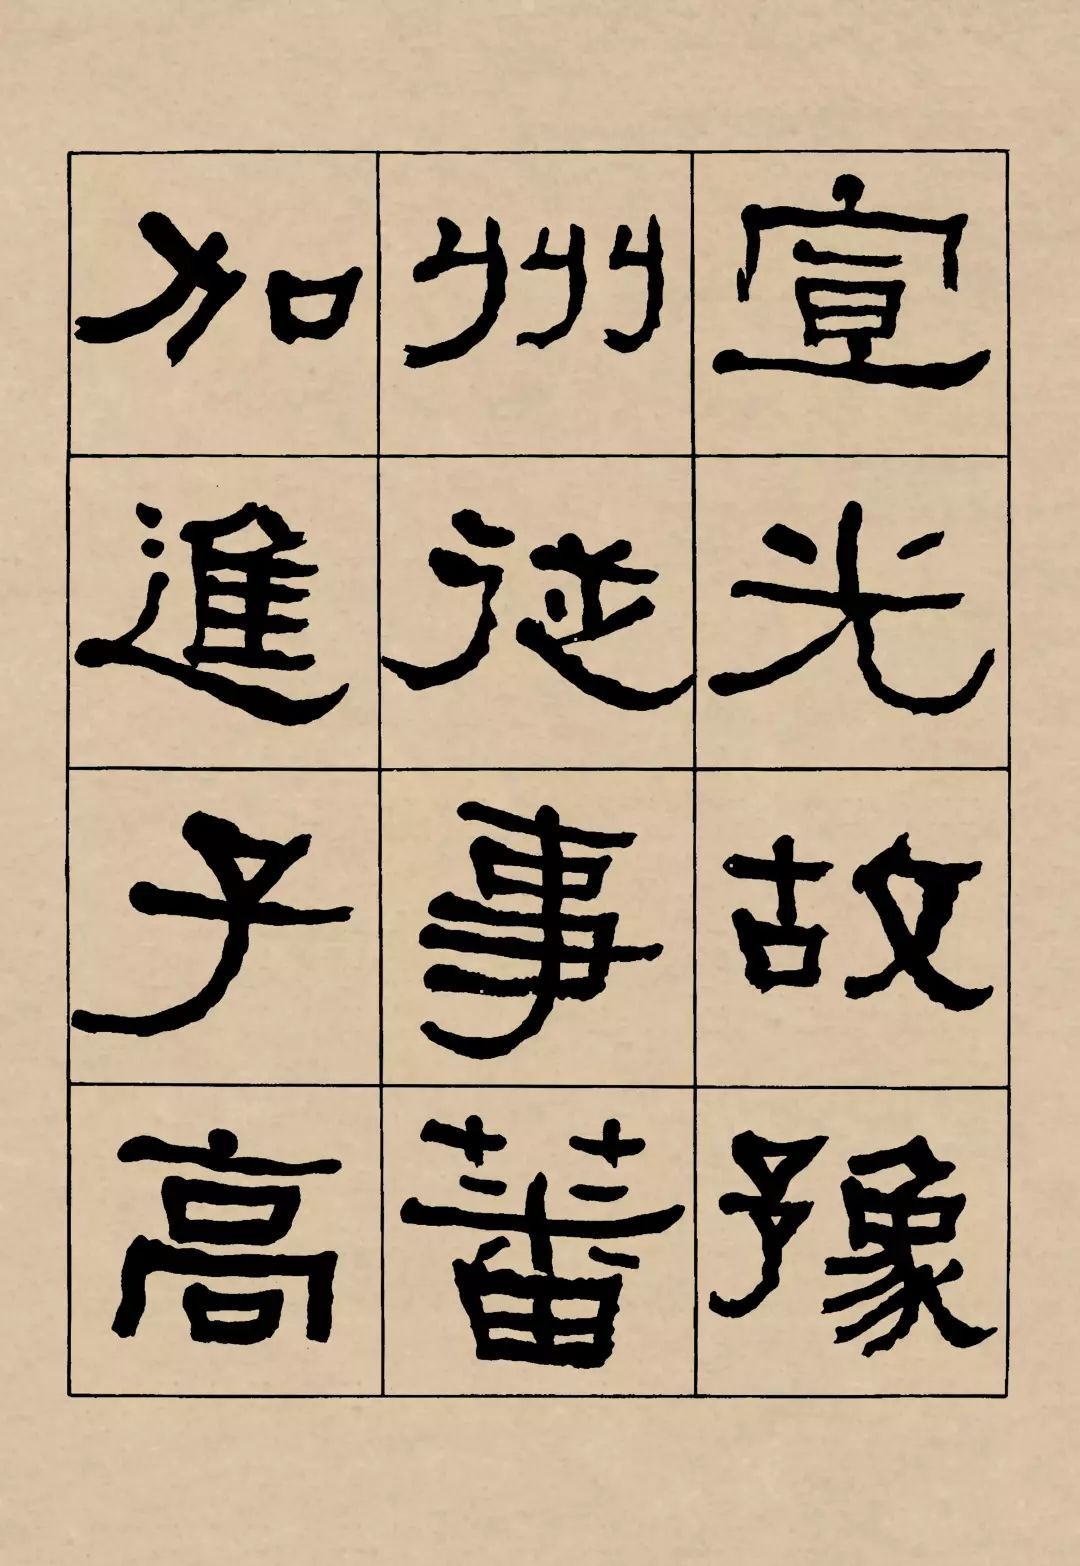 宣光故豫
州從事蕃
加進子高